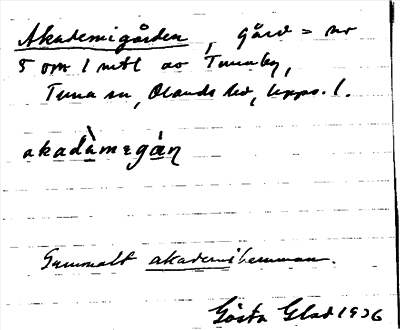 Akademigården, gård = nr
5 om 1 mtl av Tunaby,
Tuna sn, Olands hd, Upps. l.
akadàmegá̀n
Gammalt akademihemman.
Gösta Glad 1936